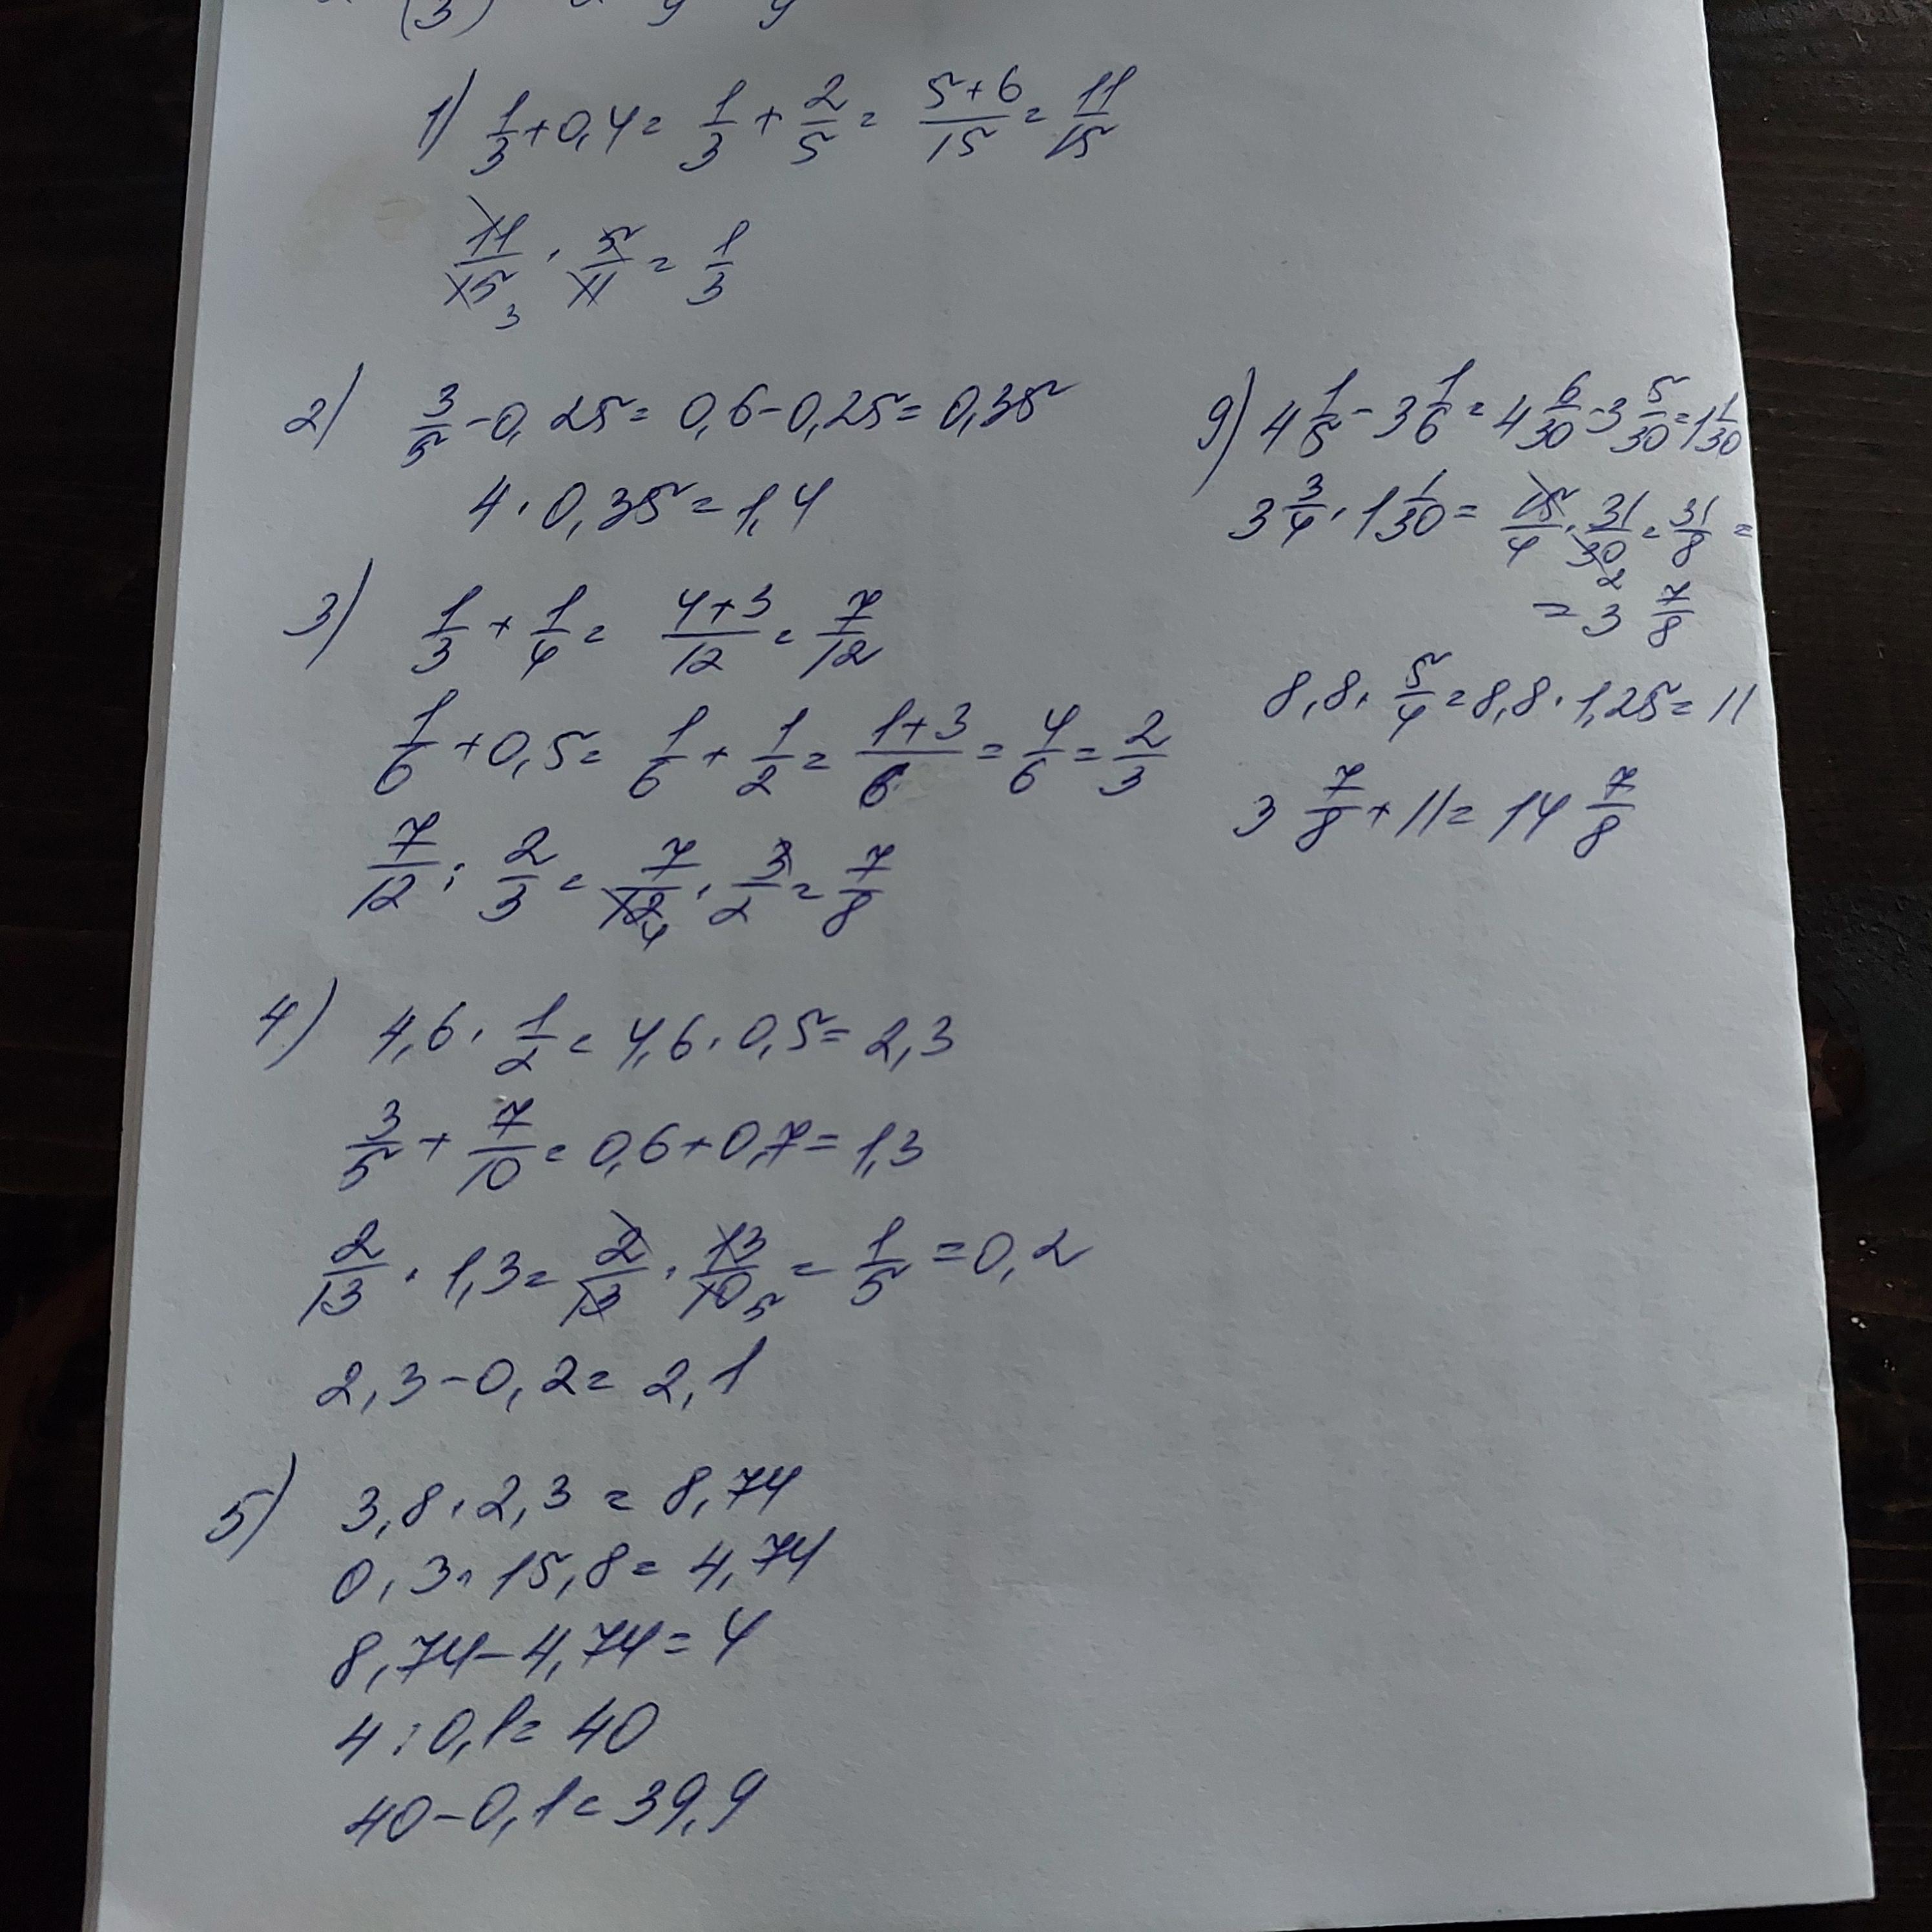 1) 1/3 + 0,4 = 1/3 + 2/5 = (5+6)/15 = 11/15
11/15 · 5/11 = 1/3
3
2) 3/5 - 0,25 = 0,6 - 0,25 = 0,35
4 · 0,35 = 1,4
3) 1/3 + 1/4 = (4+3)/12 = 7/12
1/6 + 0,5 = 1/6 + 1/2 = (1+3)/6 = 4/6 = 2/3
7/12 : 2/3 = 7/12 · 3/2 = 7/8
4
4) 4,6 · 1/2 = 4,6 · 0,5 = 2,3
3/5 + 7/10 = 0,6 + 0,7 = 1,3
2/13 · 1,3 = 2/13 · 13/10 = 1/5 = 0,2
5
2,3 - 0,2 = 2,1
5) 3,8 · 2,3 = 8,74
0,3 · 15,8 = 4,74
8,74 - 4,74 = 4
4 : 0,1 = 40
40 - 0,1 = 39,9
9) 4 1/5 - 3 1/6 = 4 6/30 - 3 5/30 = 1 1/30
3 3/4 · 1 1/30 = 15/4 · 31/30 = 31/8 =
2
= 3 7/8
8,8 · 5/4 = 8,8 · 1,25 = 11
3 7/8 + 11 = 14 7/8